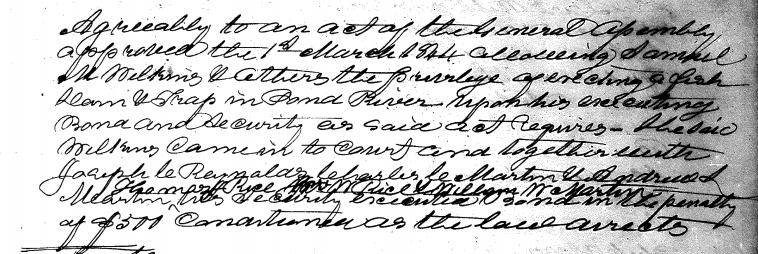 Agreeably to an act of the General Assembly
approved the 1st March 1844 allowing Samuel
M Wilkins & others the privelege of erecting a fish
Dam & Trap in Pond River upon his executing
Bond and Security as said act requires - the said
Wilkins Came in to Court and together with
Joseph C Reynolds Charles C Martin & Andrew
Thomas Rice M Rice & William W Martin
Martin, his Security executed Bond in the penalty
of $500 Conditioned as the law directs